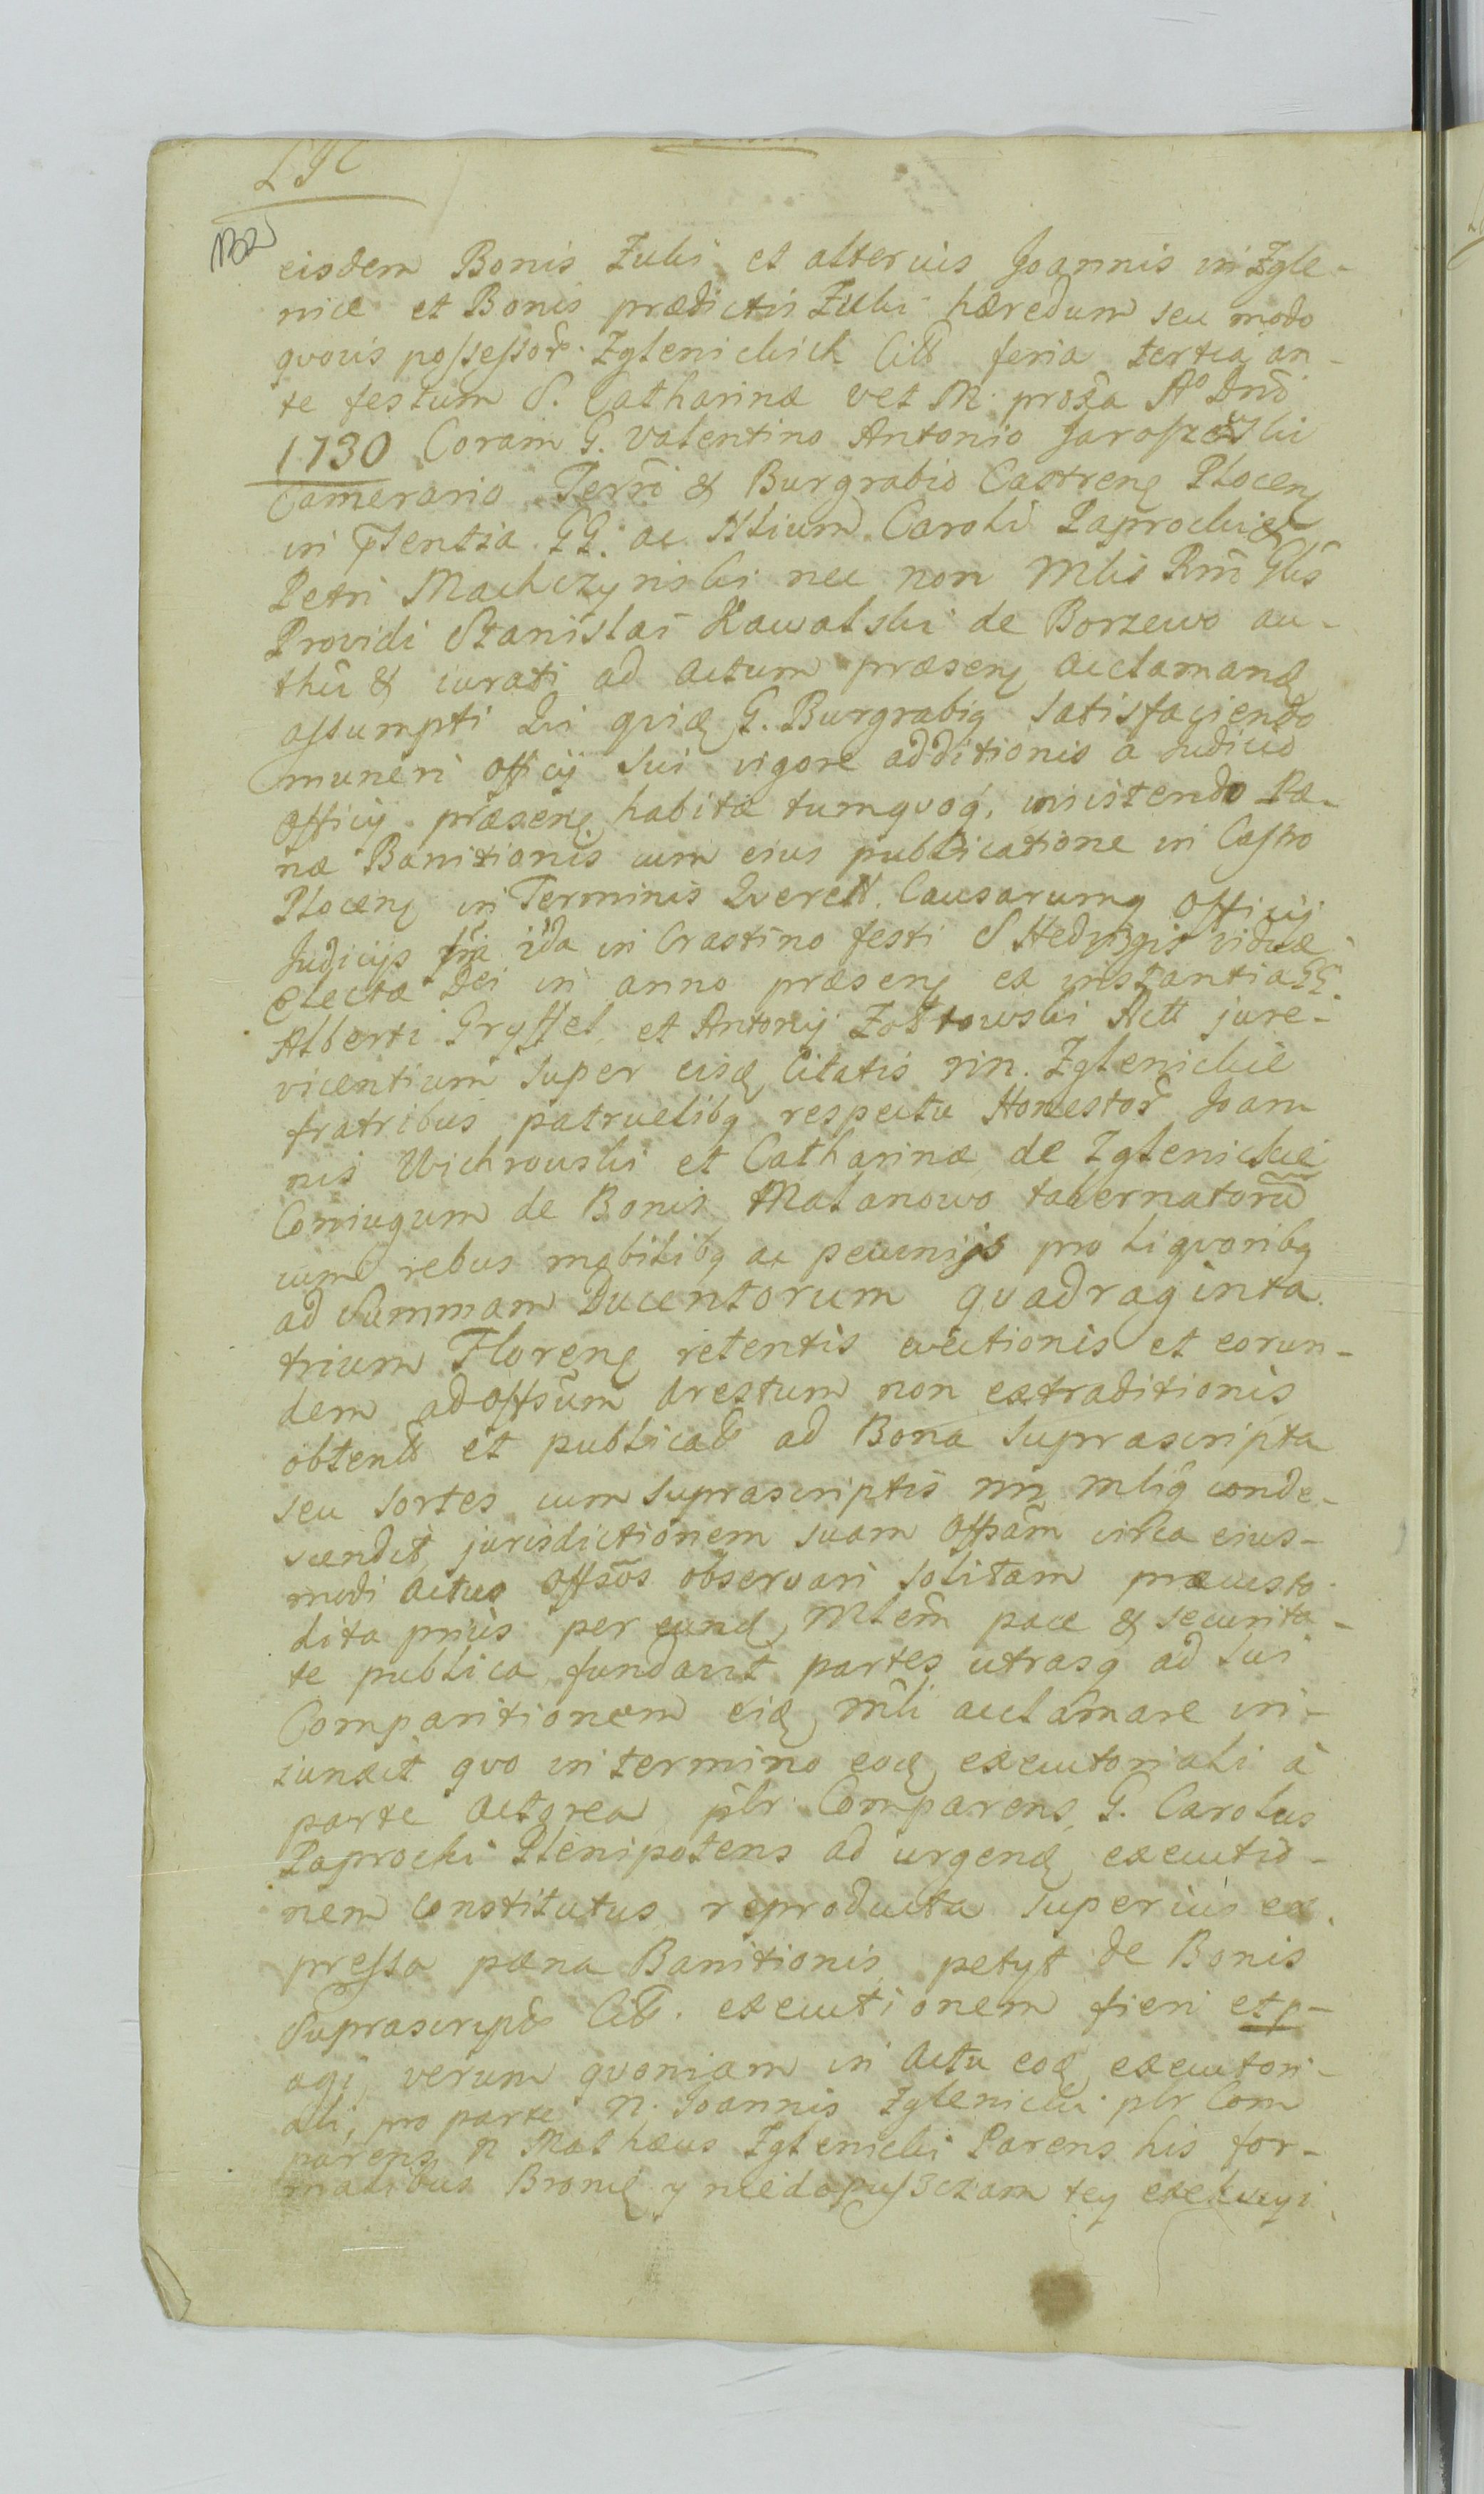 132
eisdem Bonis Zuki et alterius Joannis in Zgle-
nice et Bonis prædictis Zuki hæredum seu modo
qvovis possessor. Zglenickich Citt feria tertia an-
te festum S. Catharinæ V et M. proxa Ao Dni
1730 Coram G. Valentino Antonio Jaroszewski
Camerario Terri & Burgrabio Castreng Ploceng
in Ptentia GG. ac Nlium Caroli Paprocki &
Petri Machczynski nec non Mlis Rni Glis
Providi Stanislai Kawalski de Borzewo au-
thci & iurati ad actum præseng acclamand
assumpti Qui qvid G. Burgrabig satisfaciendo
muneri officij sui vigore additionis a Judicio
officij præseng habitæ tumqvoq. insistendo Pæ-
næ Banitionis cum eius publicatione in Castro
Ploceng in Terminis Querell. Causarumq Officij
Judicijs fria IIda in Crastino festi S Hedvigis viduæ
Electæ Dei in anno præseng ex instantia GG.
Alberti Gryffel et Antonij Zołtowski Actt jure-
vicentium super eisd Citatis nn. Zglenickie
fratribus patruelibq respectu Honestor Joan
nis Wichrowski et Catharinæ de Zglenickie
Coniugum de Bonis Malanowo tabernatoru
cum rebus mobilibq ac pecunijs pro liqvoribq
ad Summam Ducentorum qvadraginta
trium Floreng retentis evectionis et eorun-
dem ad offsum Arestum non extraditionis
obtent et publicat ad Bona suprascripta
seu sortes cum suprascriptis nn mlig conde-
scendit, jurisdictionem suam offsam circa eius-
modi actus offsos observari solitam præcusto
dita prius per eund, Mlem pace & securita-
te publica fundavit partes utrasq ad sui
Comparitionem eid, mli acclamare in-
iunxit qvo in termino eod, executoriali à
parte Actorea plr. Comparens, G. Carolus
Paprocki Plenipotens ad urgend, executio-
nem constitutus reproducta superius ex
pressa pæna Banitionis petyt de Bonis
Suprascript Citt. executionem fieri et p-
agi, verum qvoniam in actu eod, executori-
ali, pro parte N. Joannis Zglenicki plr Com
parens N Mathæus Zglenicki Parens his for-
malibus Bronię y niedopuszczam tey exekucyi